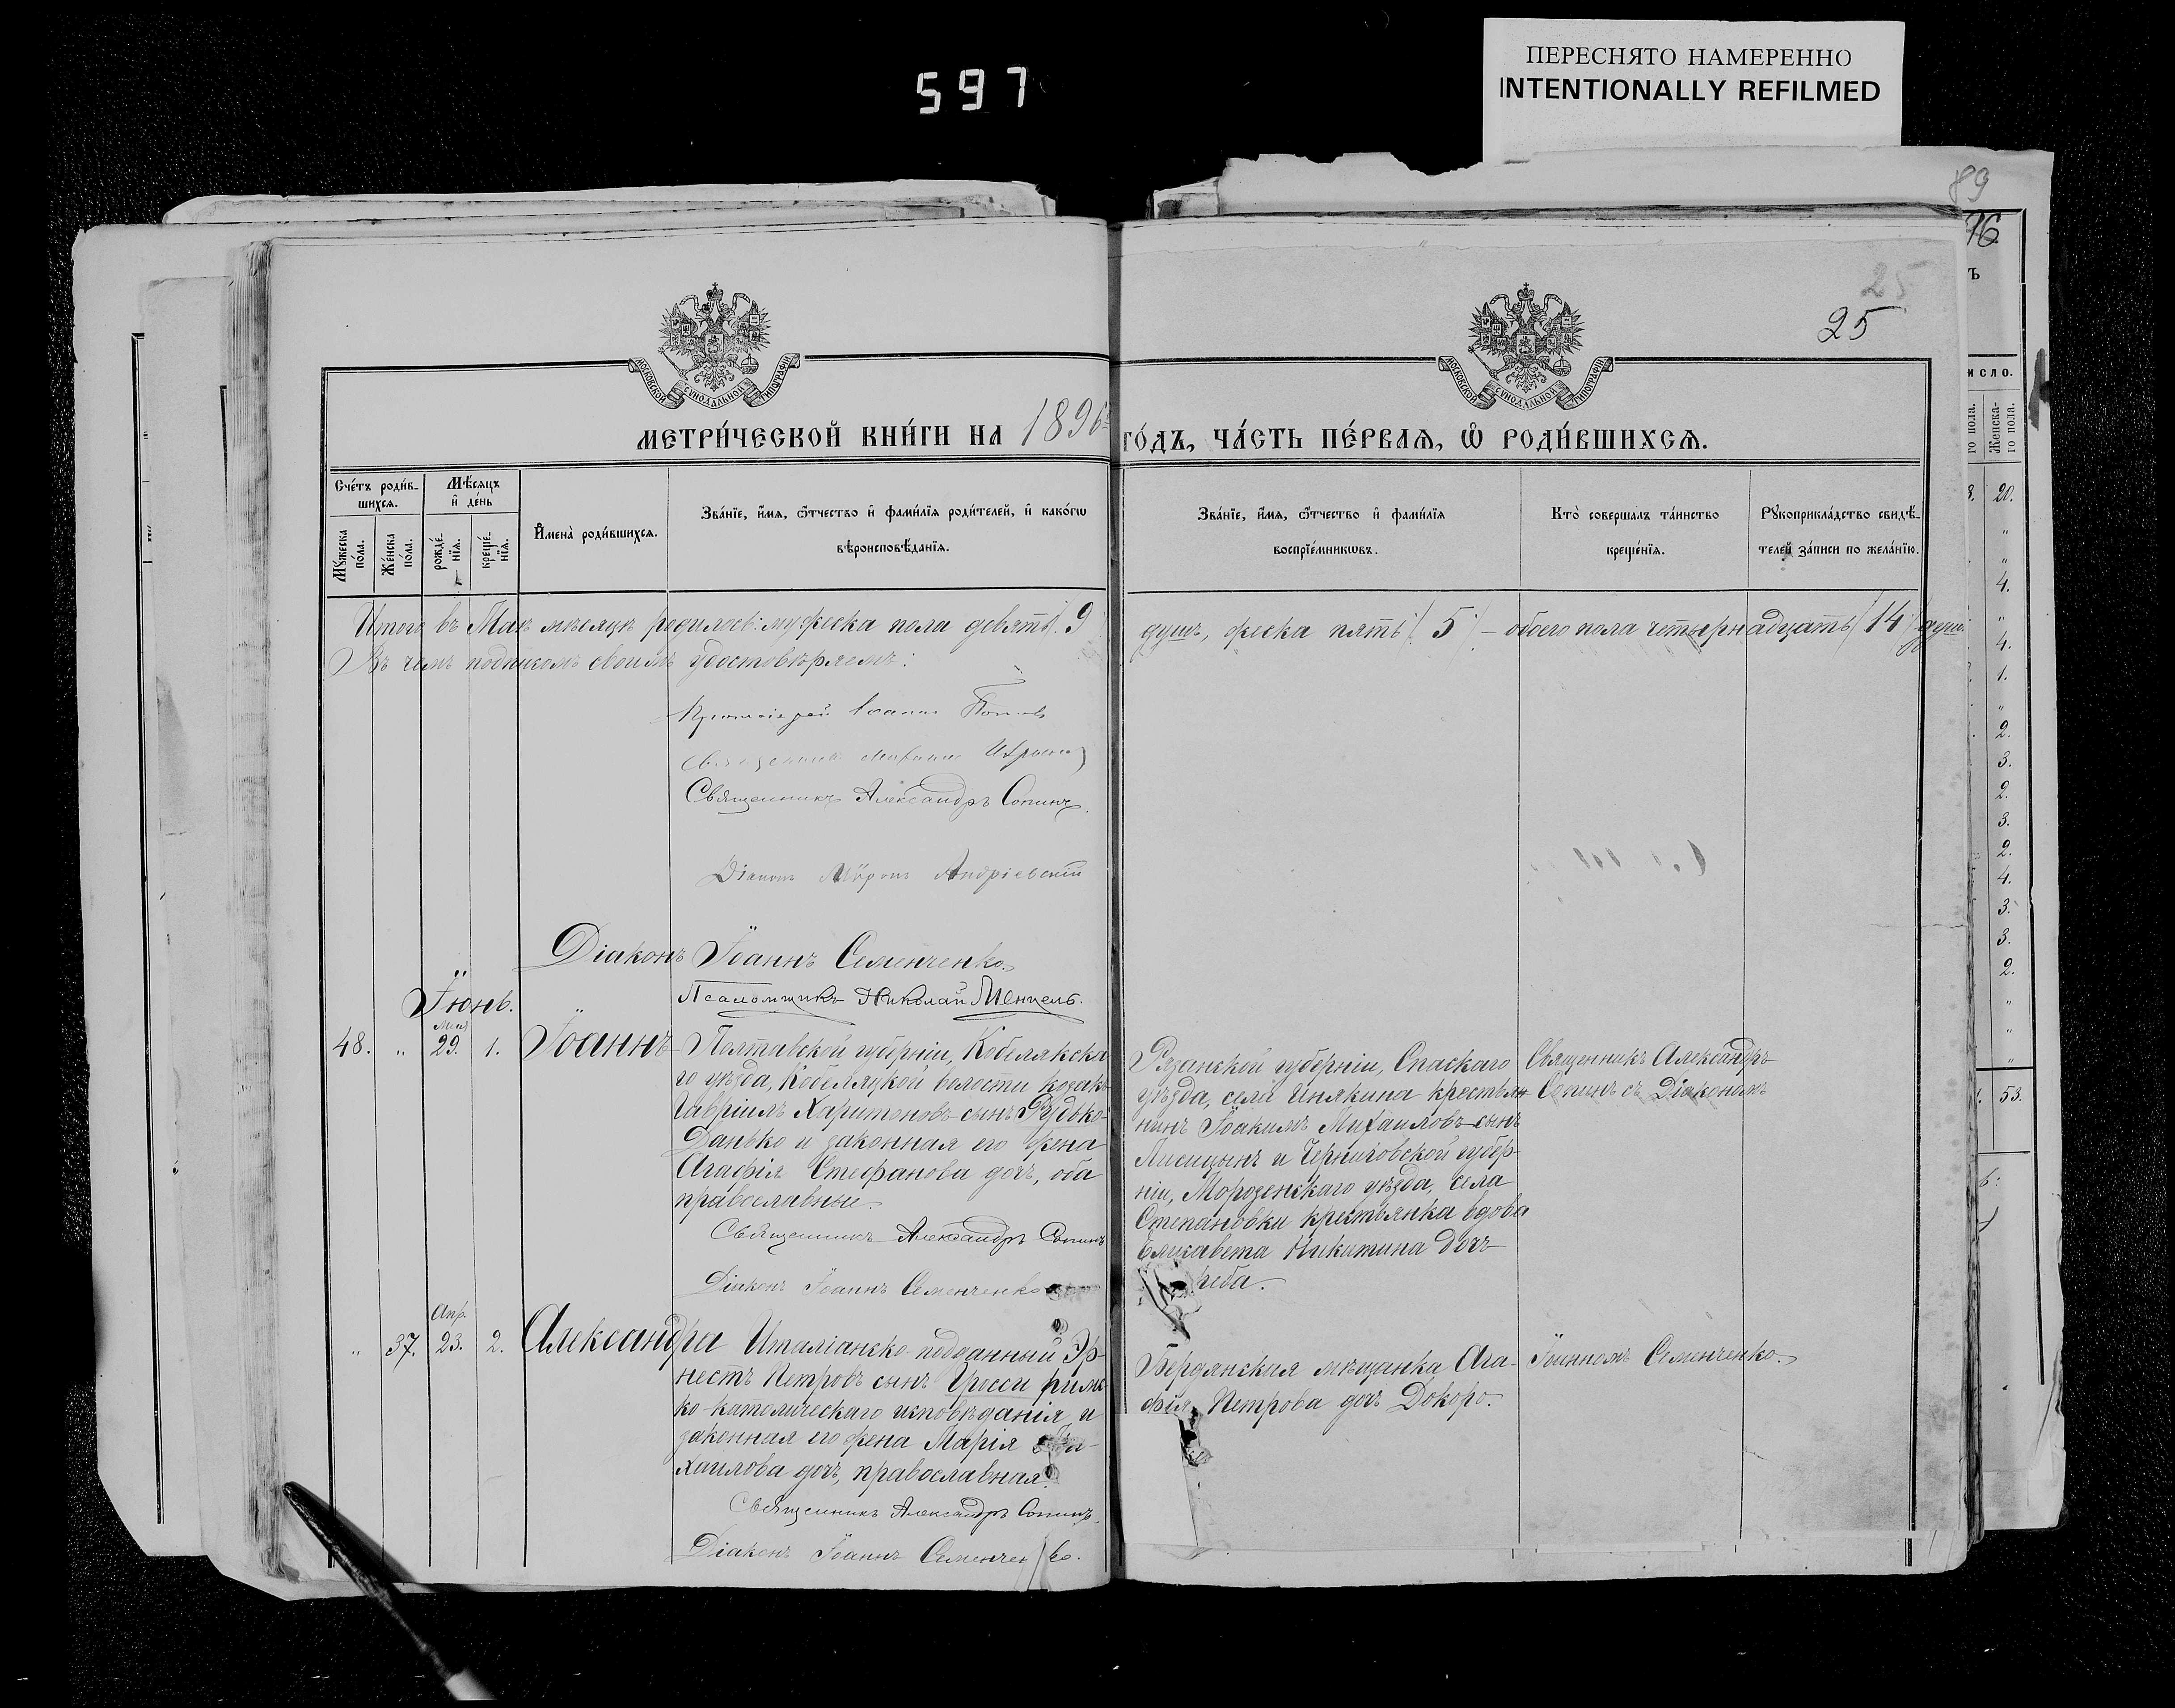 597
ПЕРЕСНЯТО НАМЕРЕННО
INTENTIONALLY REFILMED
89
76
25
25
МОСКОВСКОЙ СѴНОДАЛЬНОЙ ТИПОГРАФІИ
МОСКОВСКОЙ СѴНОДАЛЬНОЙ ТИПОГРАФІИ
МЕТРИ́ЧЕСКОЙ КНИ́ГИ НА 1896
ГО́ДЪ, ЧА́СТЬ ПЕ́РВАѦ, Ѡ РОДИ́ВШИХСѦ.
Сче́тъ роди́в-
шихсѧ.
Мѣ́сяцъ
и де́нь
Мꙋжеска
по́ла.
Же́нска
по́ла.
рожде́-
нїѧ.
креще́-
нїѧ.
Имена̀ роди́вшихсѧ.
Зва́нїе, и́мѧ, ѻ́тчество и фами́лїѧ роди́телей, и како́гѡ
вѣроисповѣ́данїѧ.
Зва́нїе, и́мѧ, ѻ́тчество и фами́лїѧ
воспрїе́мникѡвъ.
Кто̀ соверша́лъ та́инство
креще́нїѧ.
Рꙋкоприкла́дство свидѣ́-
телей за́писи по жела́нїю.
Итого въ Маѣ мѣсяцѣ родилось: мужеска пола девять /. 9
душъ, женска пять /. 5 /. — обоего пола четырнадцать /. 14 /. душъ
Въ чемъ подписомъ своимъ удостовѣряемъ:
Протоіерей Іоаннъ Поповъ
Священникъ
Священникъ Александръ Сопинъ.
Діаконъ Миронъ Андріевскій
Діаконъ Іоаннъ Семенченко
Псаломщикъ Николай Менцель.
Іюнь.
мая
48. „ 29. 1. Іоаннъ
Полтавской губерніи, Кобелякска-
го уѣзда, Кобеляцкой волости козакъ
Гавріилъ Харитоновъ сынъ Рудько-
Данько и законная его жена
Агафія Стефанова дочь, оба
православные.
Священникъ Александръ Сопинъ
Діаконъ Іоаннъ Семенченко
Рязанской губерніи, Спаскаго
уѣзда, села Инякина крестья-
нинъ Іоакимъ Михаиловъ сынъ
Лисицынъ и Черниговской губер-
ніи, Мороzенскаго уѣзда, села
Степановки крестьянка вдова
Елисавета Никитина дочь
Священникъ Александръ
Сопинъ съ Діакономъ
Апр.
„ 37. 23. 2. Александра
Италіанско-подданный Эр-
нестъ Петровъ сынъ Гросси римс-
ко-католическаго исповѣданія и
законная его жена Марія Ми-
хаилова дочь, православная.
Священникъ Александръ Сопинъ.
Діаконъ Іоаннъ Семенченко.
Бердянская мѣщанка Ага-
фія Петрова дочь Докоро.
Іоанномъ Семенченко.
ъ
исло.
го пола.
Женска-
го пола.
20.
„
„
4.
„
4.
1.
„
2.
3.
2.
3.
2.
4.
3.
3.
2.
„
„
„
53.